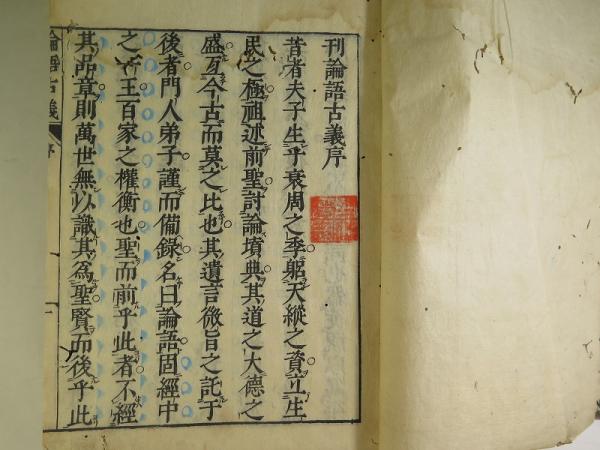 刊論語古義序
昔者夫子生乎衰周之季躬天縱之資立生
民之極祖述前聖討論墳典其道之大德之
盛亙今古而莫之比也其遺言微旨之託于
後者門人弟子謹而備錄名曰論語固經中
之王百家之權衡也聖而前乎此者不經
其品章則萬世無以識其爲聖賢而後乎此
論語古義
序